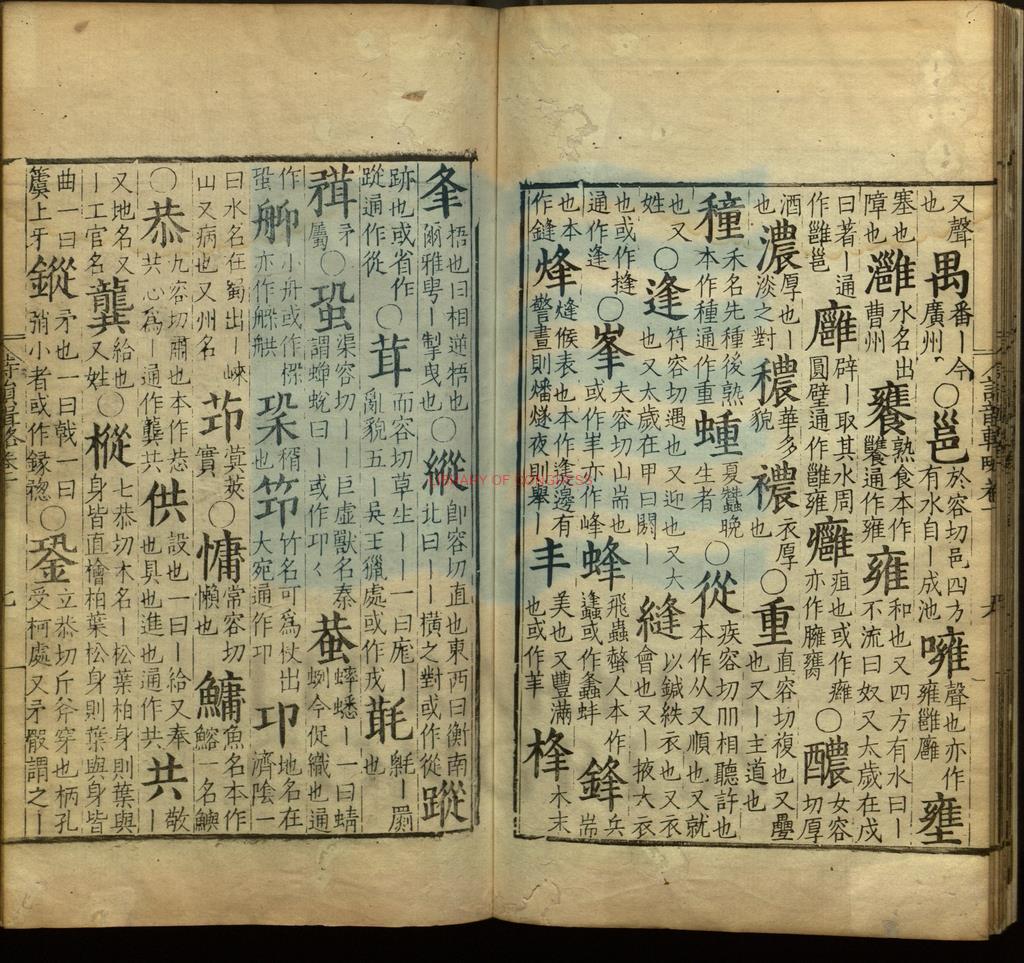 又聲也禺番｜今廣州○邕於容切邑四方有水自｜成池噰聲也亦作雍雝廱壅
塞也障也灉水名出曹州饔熟食本作通作雍雍和也又四方有水曰｜不流曰奴又太歲在戊
曰著｜通作雝邕廱辟｜取其水周圓璧通作雝雍癰疽也或作癕亦作臃○醲女容切厚
酒也濃厚也｜淡之對穠華多貌襛衣厚也○重直容切複也又疊也又｜主道也
穜禾名先種後熟本作種通作重蝩夏蠶晚生者○從疾容切相聽許也本作从又順也又就
也又姓○逢符容切遇也又迎也又大也又太歲在甲曰閼｜縫以鍼紩衣也又衣會也又｜掖大衣
也或作摓通作逢○峯夫容切山耑也或作亦作峰蜂飛蟲螫人本作或作蚌鋒兵耑
也本作鏠烽候表也本作邊有警晝則燔燧夜則舉｜丰美也又豐滿也或作桻木末
夆牾也曰相逆牾也爾雅甹｜掣曳也○縱卽容切直也東西曰衡南北曰｜橫之對或作從蹤
跡也或省作通作從○茸而容切草生｜｜一曰尨｜亂貌五｜吳王獵處或作戎｜罽也
矛屬○蛩渠容切｜｜巨虛獸名秦謂蟬蛻曰｜或作卭蛬蟋｜一曰蜻蛚今促織也通
作蛩小舟或作亦作也筇竹名可為杖出大宛通作卭卭地名在濟陰一
曰水名在蜀出｜崍山又病也又州名茚蓂莢實○慵常容切懶也鱅魚名本作鰫一名
○恭九容切肅也本作㳟共心為｜通作龔共供設也一曰｜給又奉也具也進也通作共共敬｜
又地名又｜工官名龔給也又姓○樅七恭切木名｜松葉柏身則葉與身皆直檜柏葉松身則葉與身皆
曲一曰簴上牙鏦矛也一曰戟一曰小者或作○銎立恭切斤斧穿也柄孔受柯處又矛骹謂之｜
LIBRARY OF CONGRESS